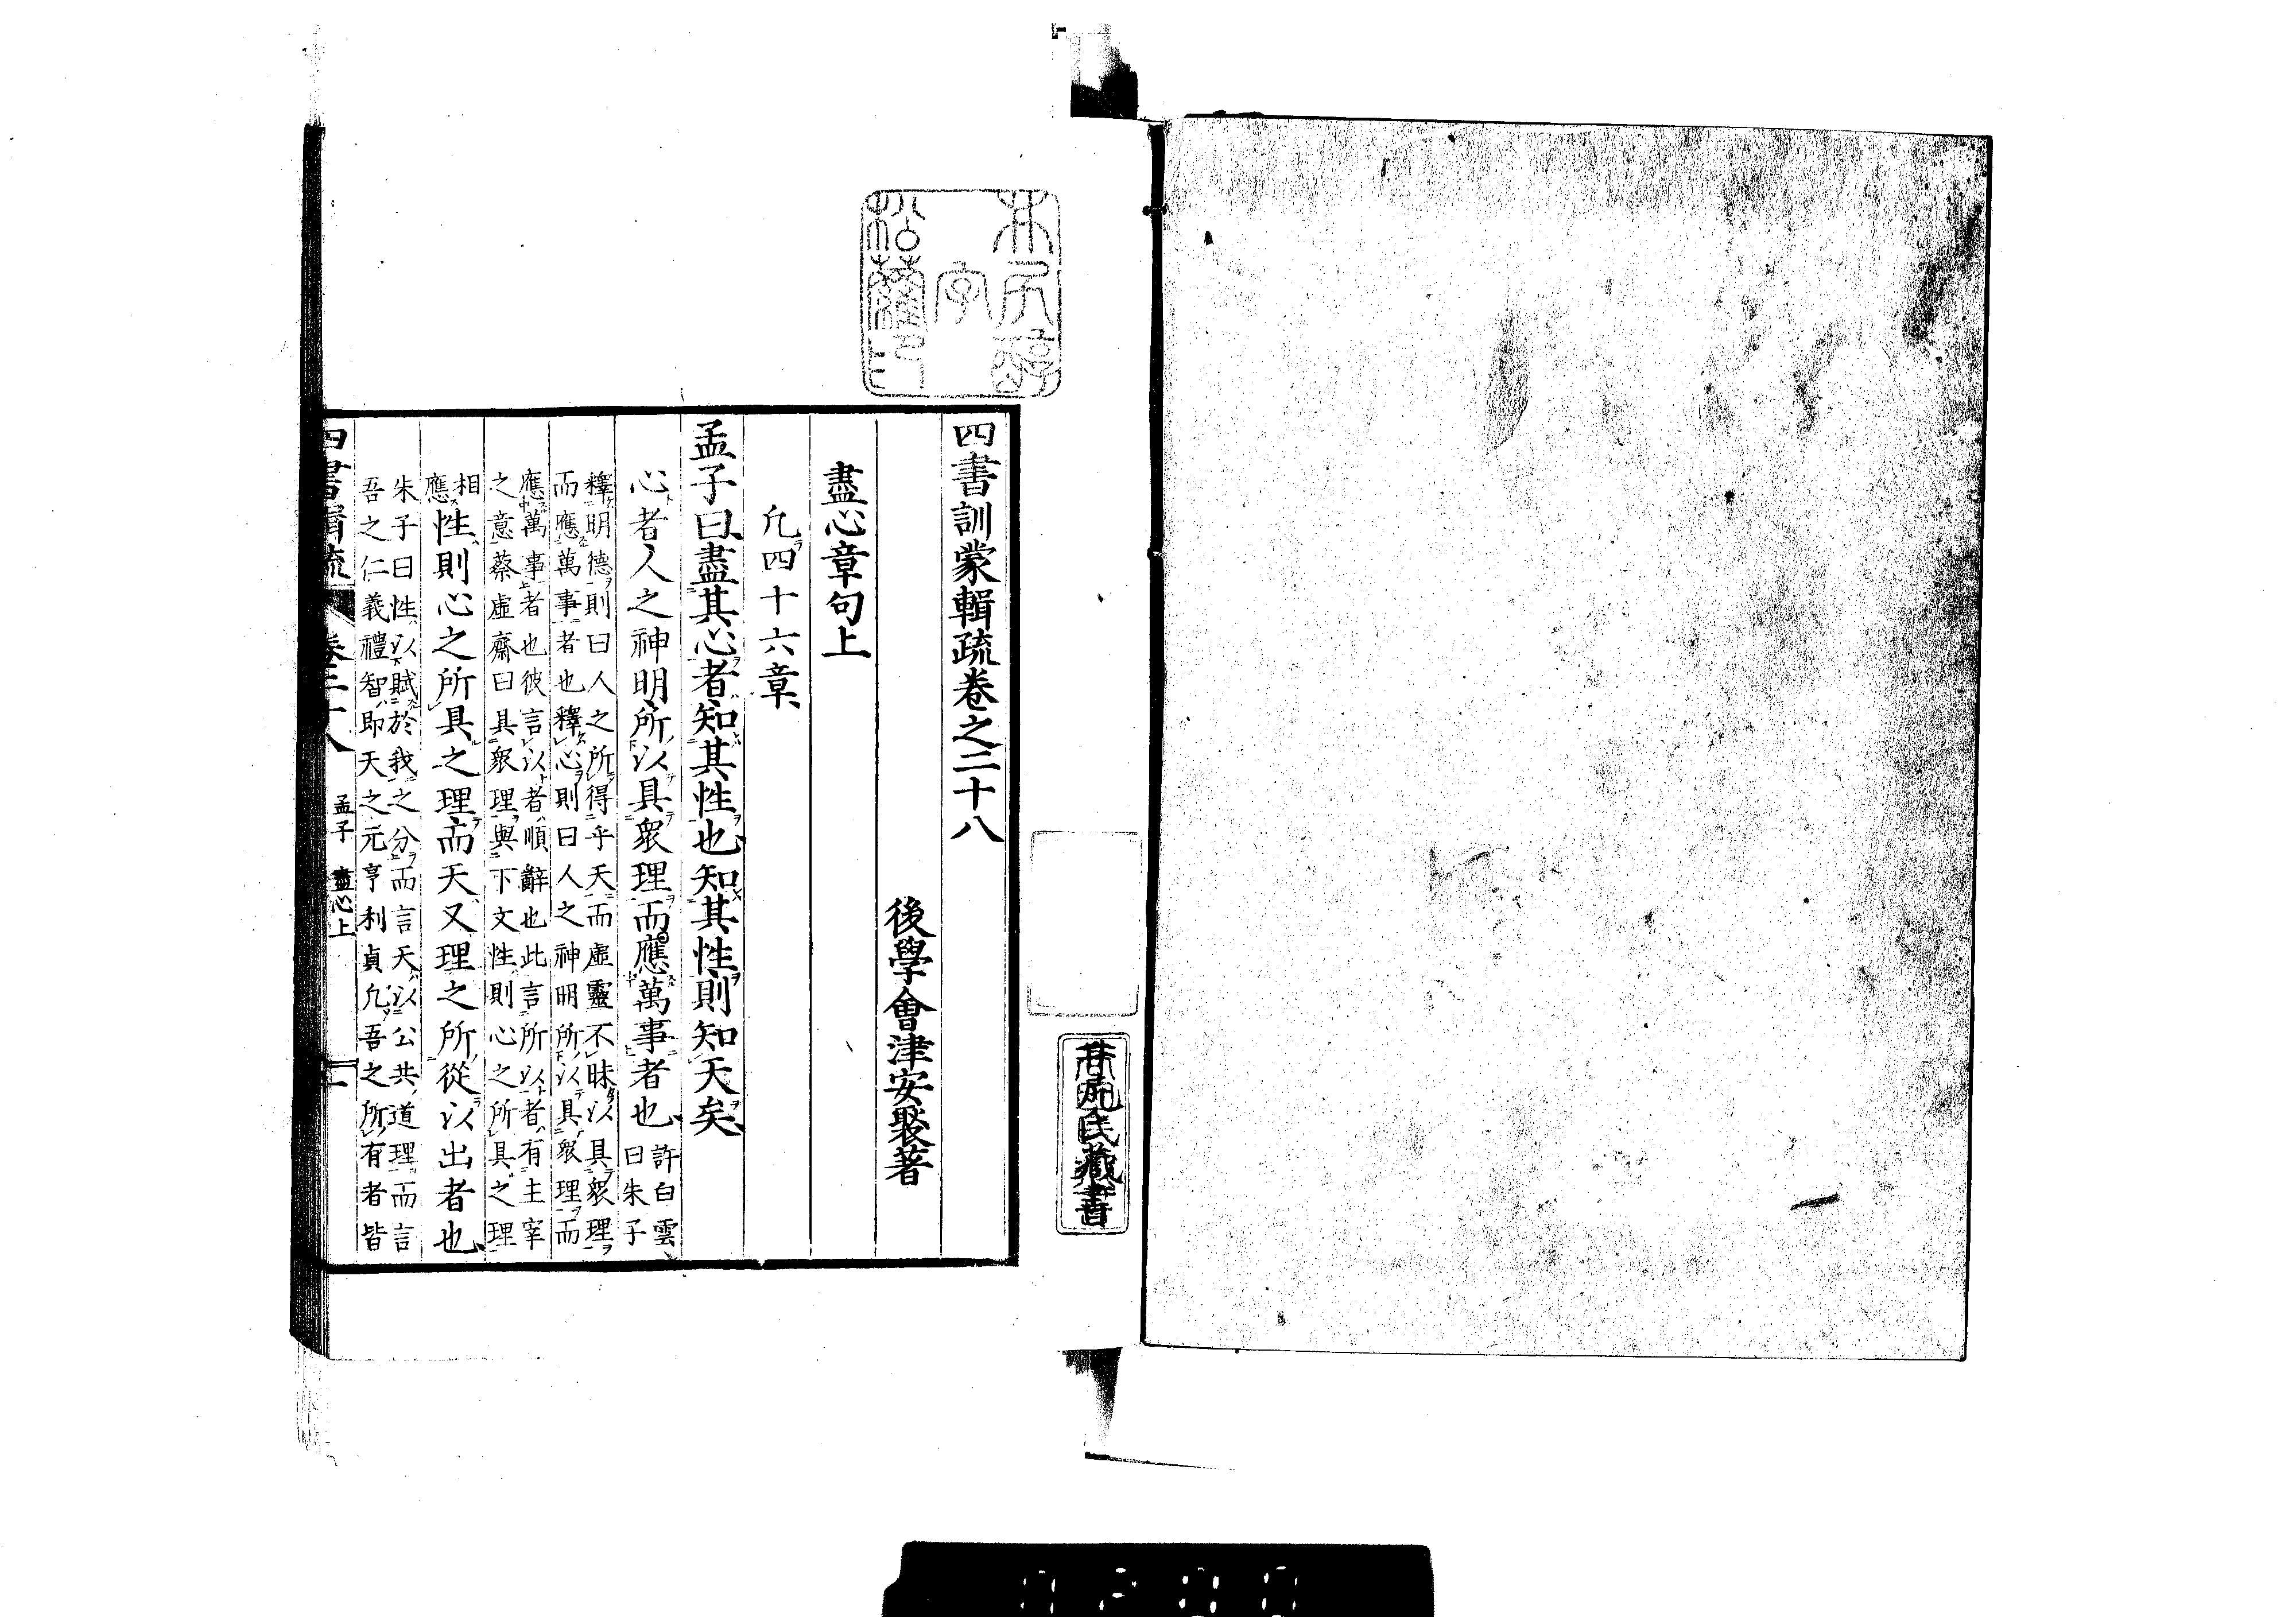 四書訓蒙輯疏卷之二十八
後學會津安褧著
盡心章句上
凡四十六章
孟子曰盡其心者知其性也知其性則知天矣
心者人之神明所以具衆理而應萬事者也許白雲
曰朱子
釋明德則曰人之所得乎天而虛靈不昧以具衆理
而應萬事者也釋心則曰人之神明所以具衆理而
應萬事者也彼言以者順辭也此言所以者有主宰
之意蔡虛齋曰具衆理與下文性則心之所具之理
相
應性則心之所具之理而天又理之所從以出者也
朱子曰性以賦於我之分而言天以公共道理而言
吾之仁義禮智即天之元亨利貞凡吾之所有者皆
四書輯疏
卷二十八
孟子 盡心上
一